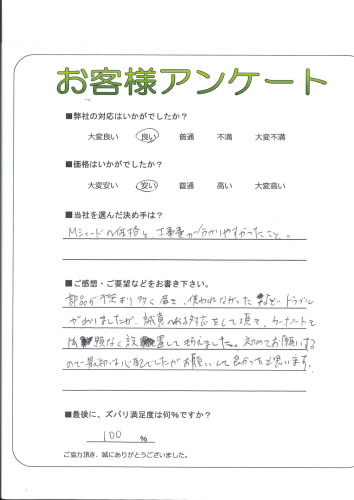 お客様アンケート
■弊社の対応はいかがでしたか？
大変良い 良い 普通 不満 大変不満
■価格はいかがでしたか？
大変安い 安い 普通 高い 大変高い
■当社を選んだ決め手は？
Mシェードの価格と、工事費が分かりやすかったこと。
■ご感想・ご要望などをお書き下さい。
部品が予定より多く届き、使われなかったなどトラブル
がありましたが、誠意ある対応をして頂て、カーポートも
問題なく設置して頂えました。初めてお願いする
ので最初は心配でしたがお願いして良かったと思います。
■最後に、ズバリ満足度は何％ですか？
100 ％
ご協力頂き、誠にありがとうございました。